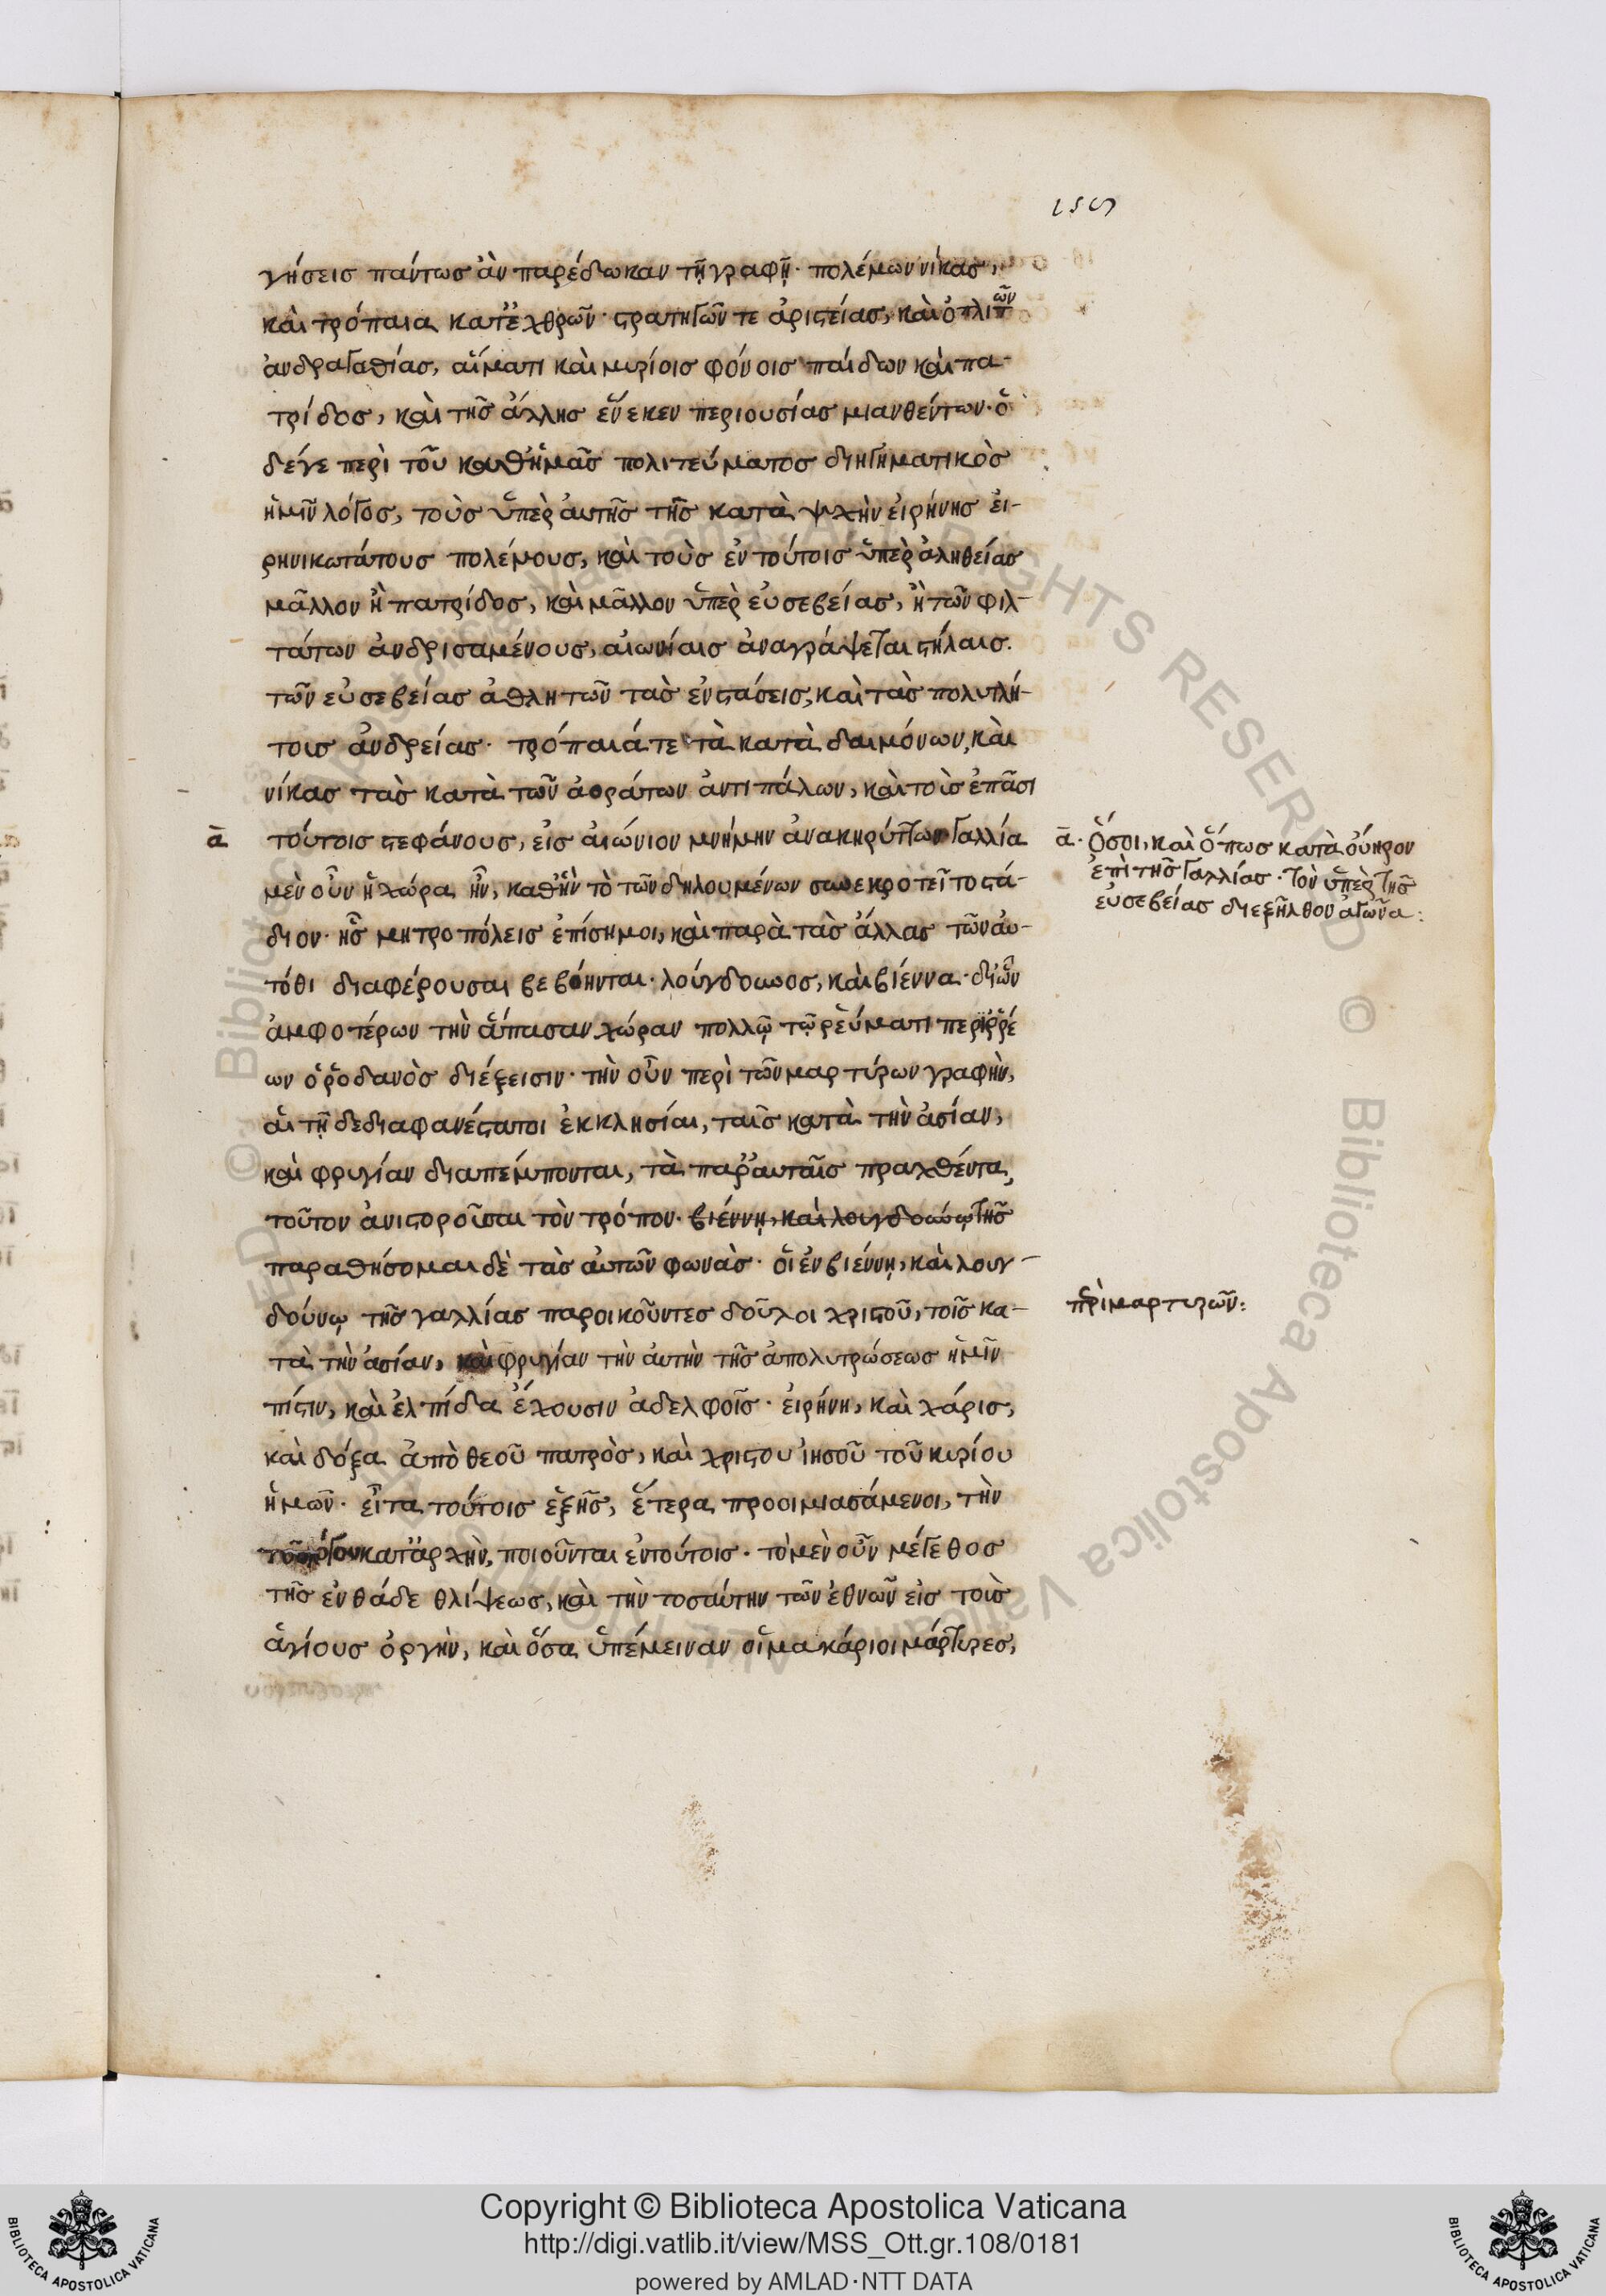 γήσεισ πάντωσ ἂν παρέδωκαν τῆ γραφῆ· πολέμων νίκασ,
καὶ τρόπαια κατ' ἐχθρῶν· στρατηγῶν τε ἀριστείασ, καὶ ὁπλιτῶν
ἀνδραγαθίασ, αἵματι καὶ μυρίοισ φόνοισ παίδων καὶ πα-
τρίδοσ, καὶ τῆσ ἄλλησ ἕνεκεν περιουσίασ μιανθέντων· ὁ
δέ γε περὶ τοῦ καθ' ἡμᾶσ πολιτεύματοσ διηγηματικὸσ
ἡμῖν λόγοσ, τοὺσ ὑπὲρ αὐτῆσ τῆσ κατὰ ψυχὴν εἰρήνησ εἰ-
ρηνικωτάτουσ πολέμουσ, καὶ τοὺσ ἐν τούτοισ ὑπὲρ ἀληθείασ
μᾶλλον ἢ πατρίδοσ, καὶ μᾶλλον ὑπὲρ εὐσεβείασ, ἢ τῶν φιλ-
τάτων ἀνδρισαμένουσ, αἰωνίαισ ἀναγράψεται στήλαισ.
τῶν εὐσεβείασ ἀθλητῶν τὰσ ἐνστάσεισ, καὶ τὰσ πολυτλή-
τοισ ἀνδρείασ· τρόπαιά τε τὰ κατὰ δαιμόνων, καὶ
νίκασ τὰσ κατὰ τῶν ἀοράτων ἀντιπάλων, καὶ τοὺσ ἐπᾶσι
ᾱ τούτοισ στεφάνουσ, εἰσ αἰώνιον μνήμην ἀνακηρύττων Γαλλία
μὲν οὖν ἡ χώρα ἦν, καθ' ἣν τὸ τῶν δηλουμένων συνεκροτεῖτο στά-
διον· ἧσ μητροπόλεισ ἐπίσημοι, καὶ παρὰ τὰσ ἄλλασ τῶν αὐ-
τόθι διαφέρουσαι βεβόηνται· λούγδουνοσ, καὶ βιέννα· δι' ὧν
ἀμφοτέρων τὴν ἅπασαν χώραν πολλῷ τῷ ῥεύματι περιῤῥέ
ων ὁ ῥοδανὸσ διέξεισιν· τὴν οὖν περὶ τῶν μαρτύρων γραφὴν,
αἱ τῇδε διαφανέσταται ἐκκλησίαι, ταῖσ κατὰ τὴν ἀσίαν,
καὶ φρυγίαν διαπέμπονται, τὰ παρ' αὐταῖσ πραχθέντα,
τοῦτον ἀνιστοροῦσαι τὸν τρόπον· βιέννῃ, καὶ λουγδούνῳ τῆσ
παραθήσομαι δὲ τὰσ αὐτῶν φωνὰσ· οἱ ἐν βιέννῃ, καὶ λουγ-
δούνῳ τῆσ γαλλίασ παροικοῦντεσ δοῦλοι χριστοῦ, τοῖσ κα-
τὰ τὴν ἀσίαν, καὶ φρυγίαν τὴν αὐτὴν τῆσ ἀπολυτρώσεωσ ἡμῖν
πίστιν, καὶ ἐλπίδα ἔχουσιν ἀδελφοῖσ· εἰρήνη, καὶ χάρισ,
καὶ δόξα ἀπὸ θεοῦ πατρὸσ, καὶ χριστου ἰησοῦ τοῦ κυρίου
ἡμῶν· εἶτα τούτοισ ἑξῆσ, ἕτερα προοιμιασάμενοι, τὴν
τοῦ λόγου καταρχὴν, ποιοῦνται ἐν τούτοισ· τὸ μὲν οὖν μέγεθοσ
τῆσ ἐνθάδε θλίψεωσ, καὶ τὴν τοσαύτην τῶν ἐθνῶν εἰσ τοὺσ
ἁγίουσ ὀργὴν, καὶ ὅσα ὑπέμειναν οἱ μακάριοι μάρτυρεσ,
ᾱ· Ὅσοι, καὶ ὅπωσ κατὰ οὐῆρον
ἐπὶ τῆσ Γαλλίασ· τὸν ὑπὲρ τῆσ
εὐσεβείασ διεξῆλθον ἀγῶνα:
περὶ μαρτυρῶν:
Copyright © Biblioteca Apostolica Vaticana
http://digi.vatlib.it/view/MSS_Ott.gr.108/0181
powered by AMLAD·NTT DATA
BIBLIOTECA APOSTOLICA VATICANA
BIBLIOTECA APOSTOLICA VATICANA